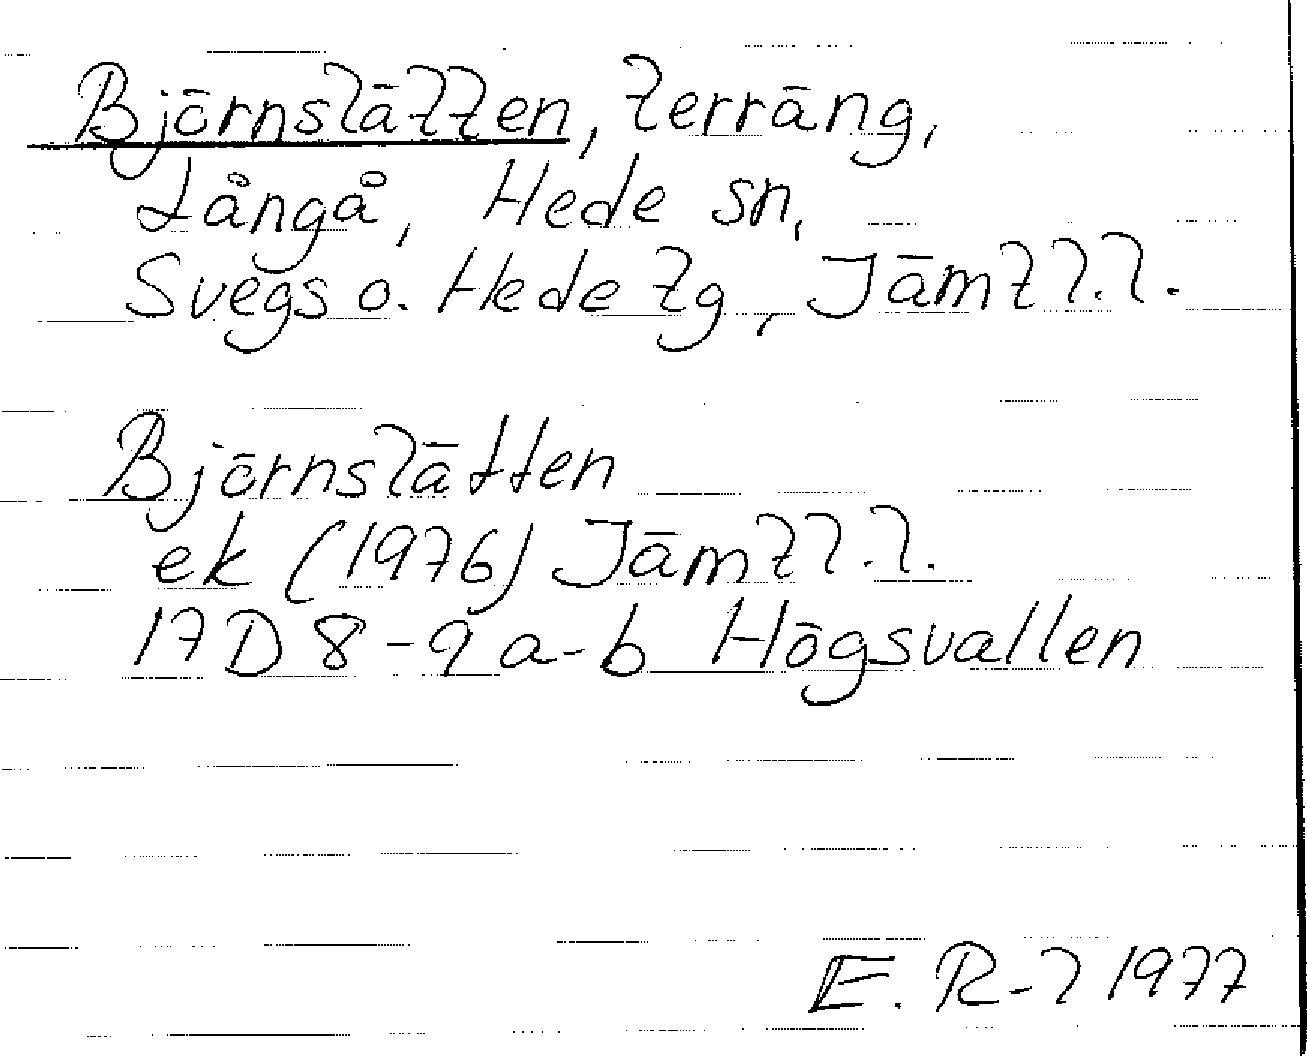 Björnslätten, terräng,
Långå, Hede sn,
Svegs o. Hede tg, Jämtl.l.
Björnslätten
ek (1976) Jämtl.l.
17D 8-9 a-b Högsvallen
E. R-l 1977